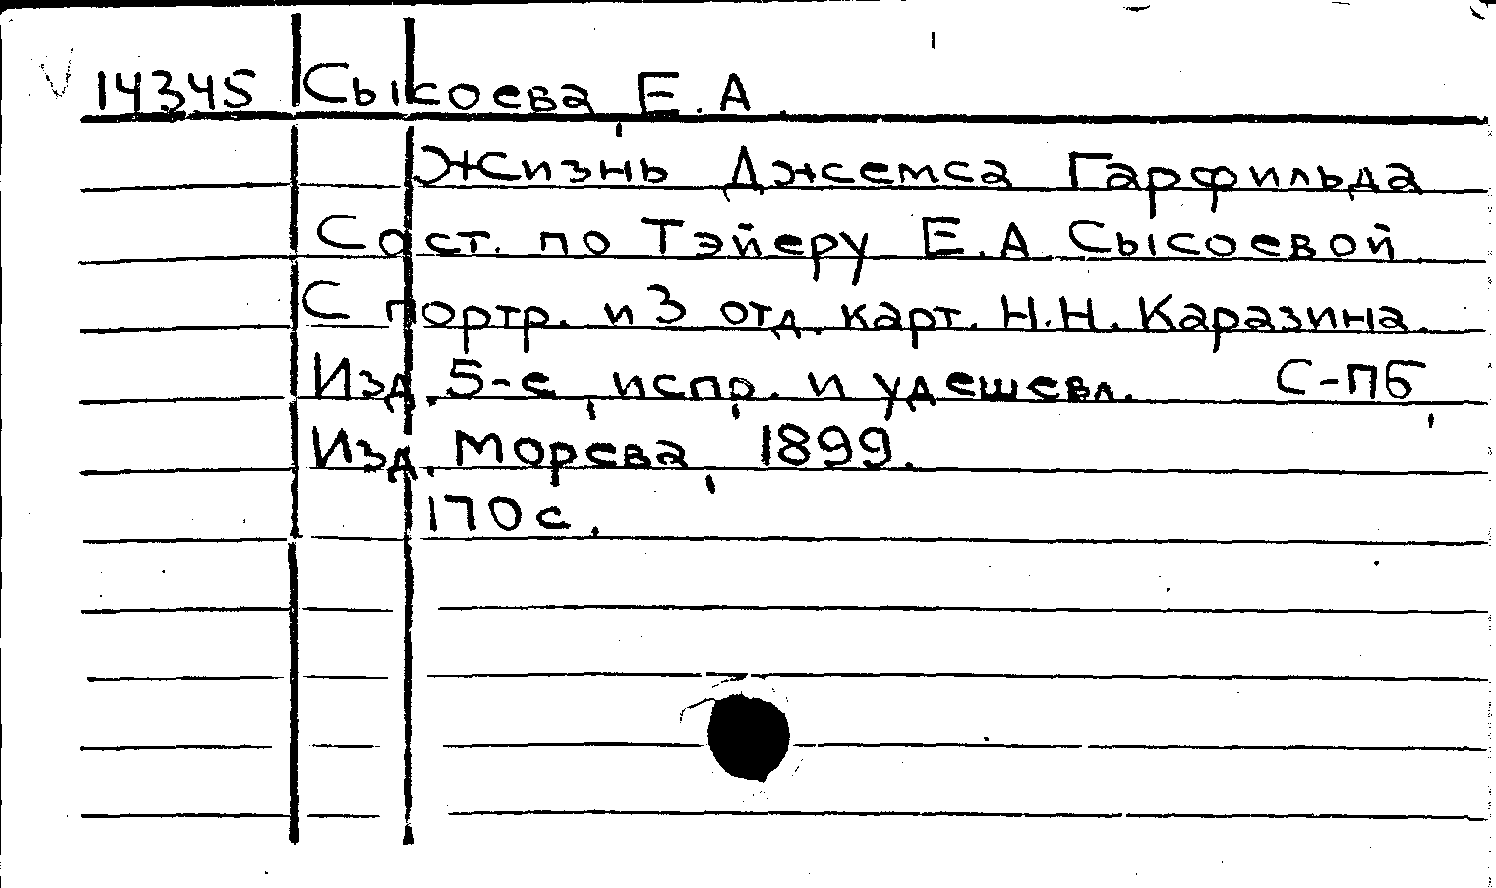 14345 Сысоева, Е.А.
Жизнь Джемса Гарфильда
Сост. по Тэйеру Е.А. Сысоевой.
С портр. и 3 отд. карт. Н.Н. Каразина.
Изд. 5-е, испр. и удешевл. С-ПБ,
Изд. Морева, 1899.
170 с.